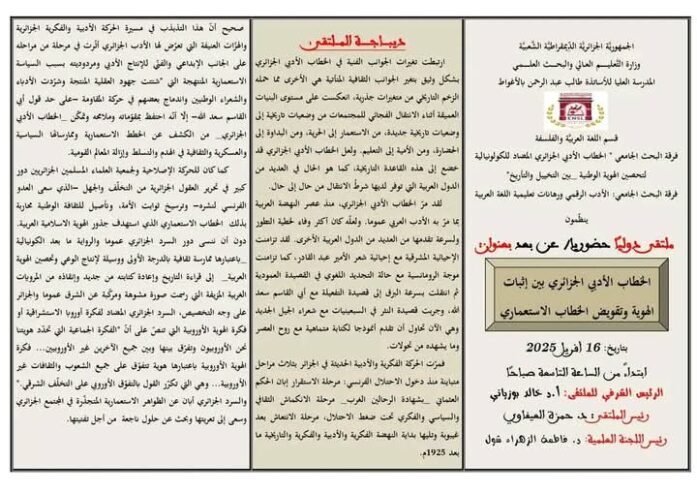 الجمهوريّة الجزائريّة الدّيمقراطيّة الشّعبيّة
وزارة التّعليـم العـالي والبحـث العلمـي
المدرسة العليا للأساتذة طالب عبد الرحمن بالأغواط
ENSL
قسم اللغة العربيّة والفلسفة
فرقة البحث الجامعي " الخطاب الأدبي الجزائري المضاد للكولونيالية
لتحصين الهوية الوطنية _بين التخييل والتأريخ"
فرقة البحث الجامعي: الأدب الرقمي ورهانات تعليمية اللغة العربية
ينظّمون
ملتقى دوليّا حضوريا/ عن بعد بعنوان
الخطاب الأدبي الجزائري بين إثبات
الهوية وتقويض الخطاب الاستعماري
بتاريخ: 16 أفريل 2025
ابتداءً من الساعة التاسعة صباحًا
الرئيس الشرفي للملتقى: أ.د خالد بوزياني
رئيس الملتقى: د. حمزة العيفاوي
رئيس اللجنة العلمية: د. فاطمة الزهراء شول
ديباجـة الملتقى
ارتبطت تغيرات الجوانب الفنية في الخطاب الأدبي الجزائري
بشكل وثيق بتغير الجوانب الثقافية المتأتية هي الأخرى مما حمله
الزخم التاريخي من متغيرات جذرية، انعكست على مستوى البنيات
العميقة أثناء الانتقال الفجائي للمجتمعات من وضعيات تاريخية إلى
وضعيات تاريخية جديدة، من الاستعمار إلى الحرية، ومن البداوة إلى
الحضارة، ومن الأمية إلى التعليم. ولعل الخطاب الأدبي الجزائري قد
خضع إلى هذه القاعدة التاريخية، كما هو الحال في العديد من
الدول العربية التي توفر لديها شرط الانتقال من حال إلى حال.
لقد مرّ الخطاب الأدبي الجزائري، منذ عصر النهضة العربية
بما مرّ به الأدب العربي عموما. ولعلّه كان أكثر وفاء لخطية التطور
ولسرعة تقدمها من العديد من الدول العربية الأخرى. فقد تزامنت
الإحيائية المشرقية مع إحيائية شعر الأمير عبد القادر، كما تزامنت
موجة الرومانسية مع حالة التجديد اللغوي في القصيدة العمودية
ثم انتقلت بسرعة البرق إلى قصيدة التفعيلة مع أبي القاسم سعد
الله، وجربت قصيدة النثر في السبعينيات مع شعراء الجيل الجديد
وهي الآن تحاول أن تقدم أنموذجا لكتابة متماهية مع روح العصر
وما يشهده من تحولات.
فمرّت الحركة الفكرية والأدبية الحديثة في الجزائر بثلاث مراحل
متباينة منذ دخول الاحتلال الفرنسي: مرحلة الاستقرار إبان الحكم
العثماني _بشهادة الرحالين الغرب_ مرحلة الانكماش الثقافي
والسياسي والفكري تحت ضغط الاحتلال، مرحلة الانتعاش بعد
غيبوبة وتليها بداية النهضة الفكرية والأدبية والفكرية والتاريخية ما
بعد 1925م.
صحيح أنّ هذا التذبذب في مسيرة الحركة الأدبية والفكرية الجزائرية
والهزّات العنيفة التي تعرّض لها الأدب الجزائري أثرت في مرحلة من مراحله
على الجانب الإبداعي والفنّي للإنتاج الأدبي ومردوديته بسبب السياسة
الاستعمارية المنتهجة التي "شتتت جهود العقلية المنتجة وشرّدت الأدباء
والشعراء الوطنيين واندماج بعضهم في حركة المقاومة _على حد قول أبي
القاسم سعد الله_ إلّا أنّه احتفظ بمقوّماته وملامحه وتمكّن _الأدب
الجزائري_ من الكشف عن الخطط الاستعمارية وممارساتها السياسية
والعسكرية والثقافية في الهدم والتسلط وإزالة المعالم القومية.
كما كان للحركة الإصلاحية ولجمعية العلماء المسلمين الجزائريين دور
كبير في تحرير العقول الجزائرية من التخلّف والجهل _الذي سعى العدو
الفرنسي لنشره_ وترسيخ ثوابت الأمة، وتأصيل للثقافة الوطنية محاربة
بذلك الخطاب الاستعماري الذي استهدف جذور الهوية الاسلامية العربية.
دون أن ننسى دور السرد الجزائري عموما والرواية ما بعد الكولونيالية
_باعتبارها ممارسة ثقافية بالدرجة الأولى ووسيلة لإنتاج الوعي وتحصين الهوية
العربية_ إلى قراءة التاريخ وإعادة كتابته من جديد وإنقاذه من المرويات
الغربية المزيفة التي رسمت صورة مشوهة ومركّبة عن الشرق عموما والجزائر
على وجه التخصيص. السرد الجزائري المضاد لفكرة أوروبا الاستشراقية أو
فكرة الهوية الأوروبية التي تنصّ على أنّ "الفكرة الجماعية التي تحدّد هويتنا
نحن الأوروبيون وتفرّق بينها وبين جميع الآخرين غير الأوروبيين... فكرة
الهوية الأوروبية باعتبارها هوية تتفوّق على جميع الشعوب والثقافات غير
الأوروبية... وهي التي تكرّر القول بالتفوّق الأوروبي على التخلّف الشرقي."
والسرد الجزائري أبان عن الظواهر الاستعمارية المتجذّرة في المجتمع الجزائري
وسعى إلى تعريتها وبحث عن حلول ناجعة من أجل تفنيتها.